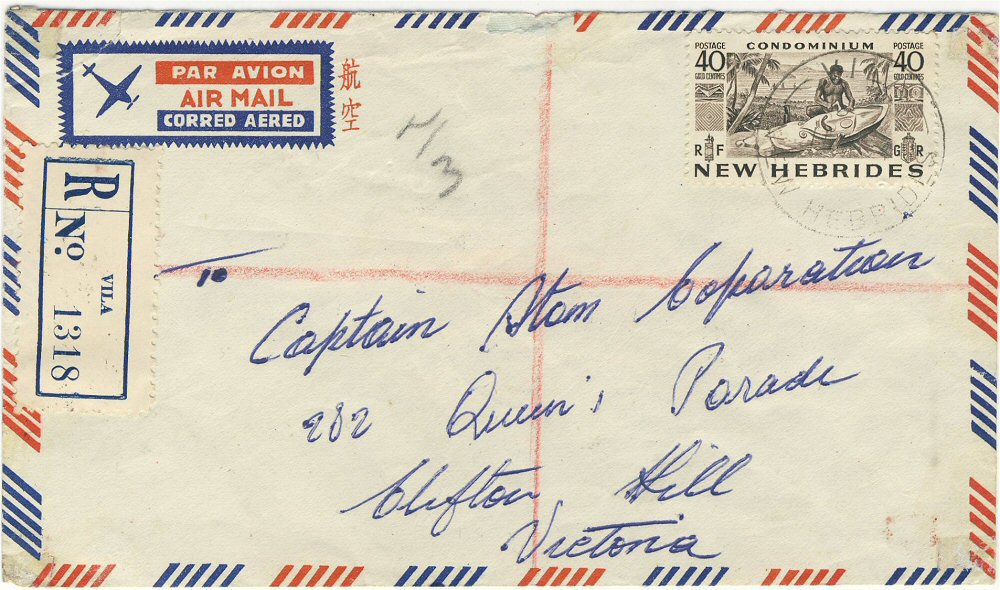 PAR AVION
AIR MAIL
CORREO AEREO
航空
POSTAGE CONDOMINIUM POSTAGE
40 40
GOLD CENTIMES GOLD CENTIMES
R F G R
NEW HEBRIDES
W HEBRIDES
R
No.
VILA
1318
To
Captain Atom Coparation
282 Queen's Parade
Clifton Hill
Victoria